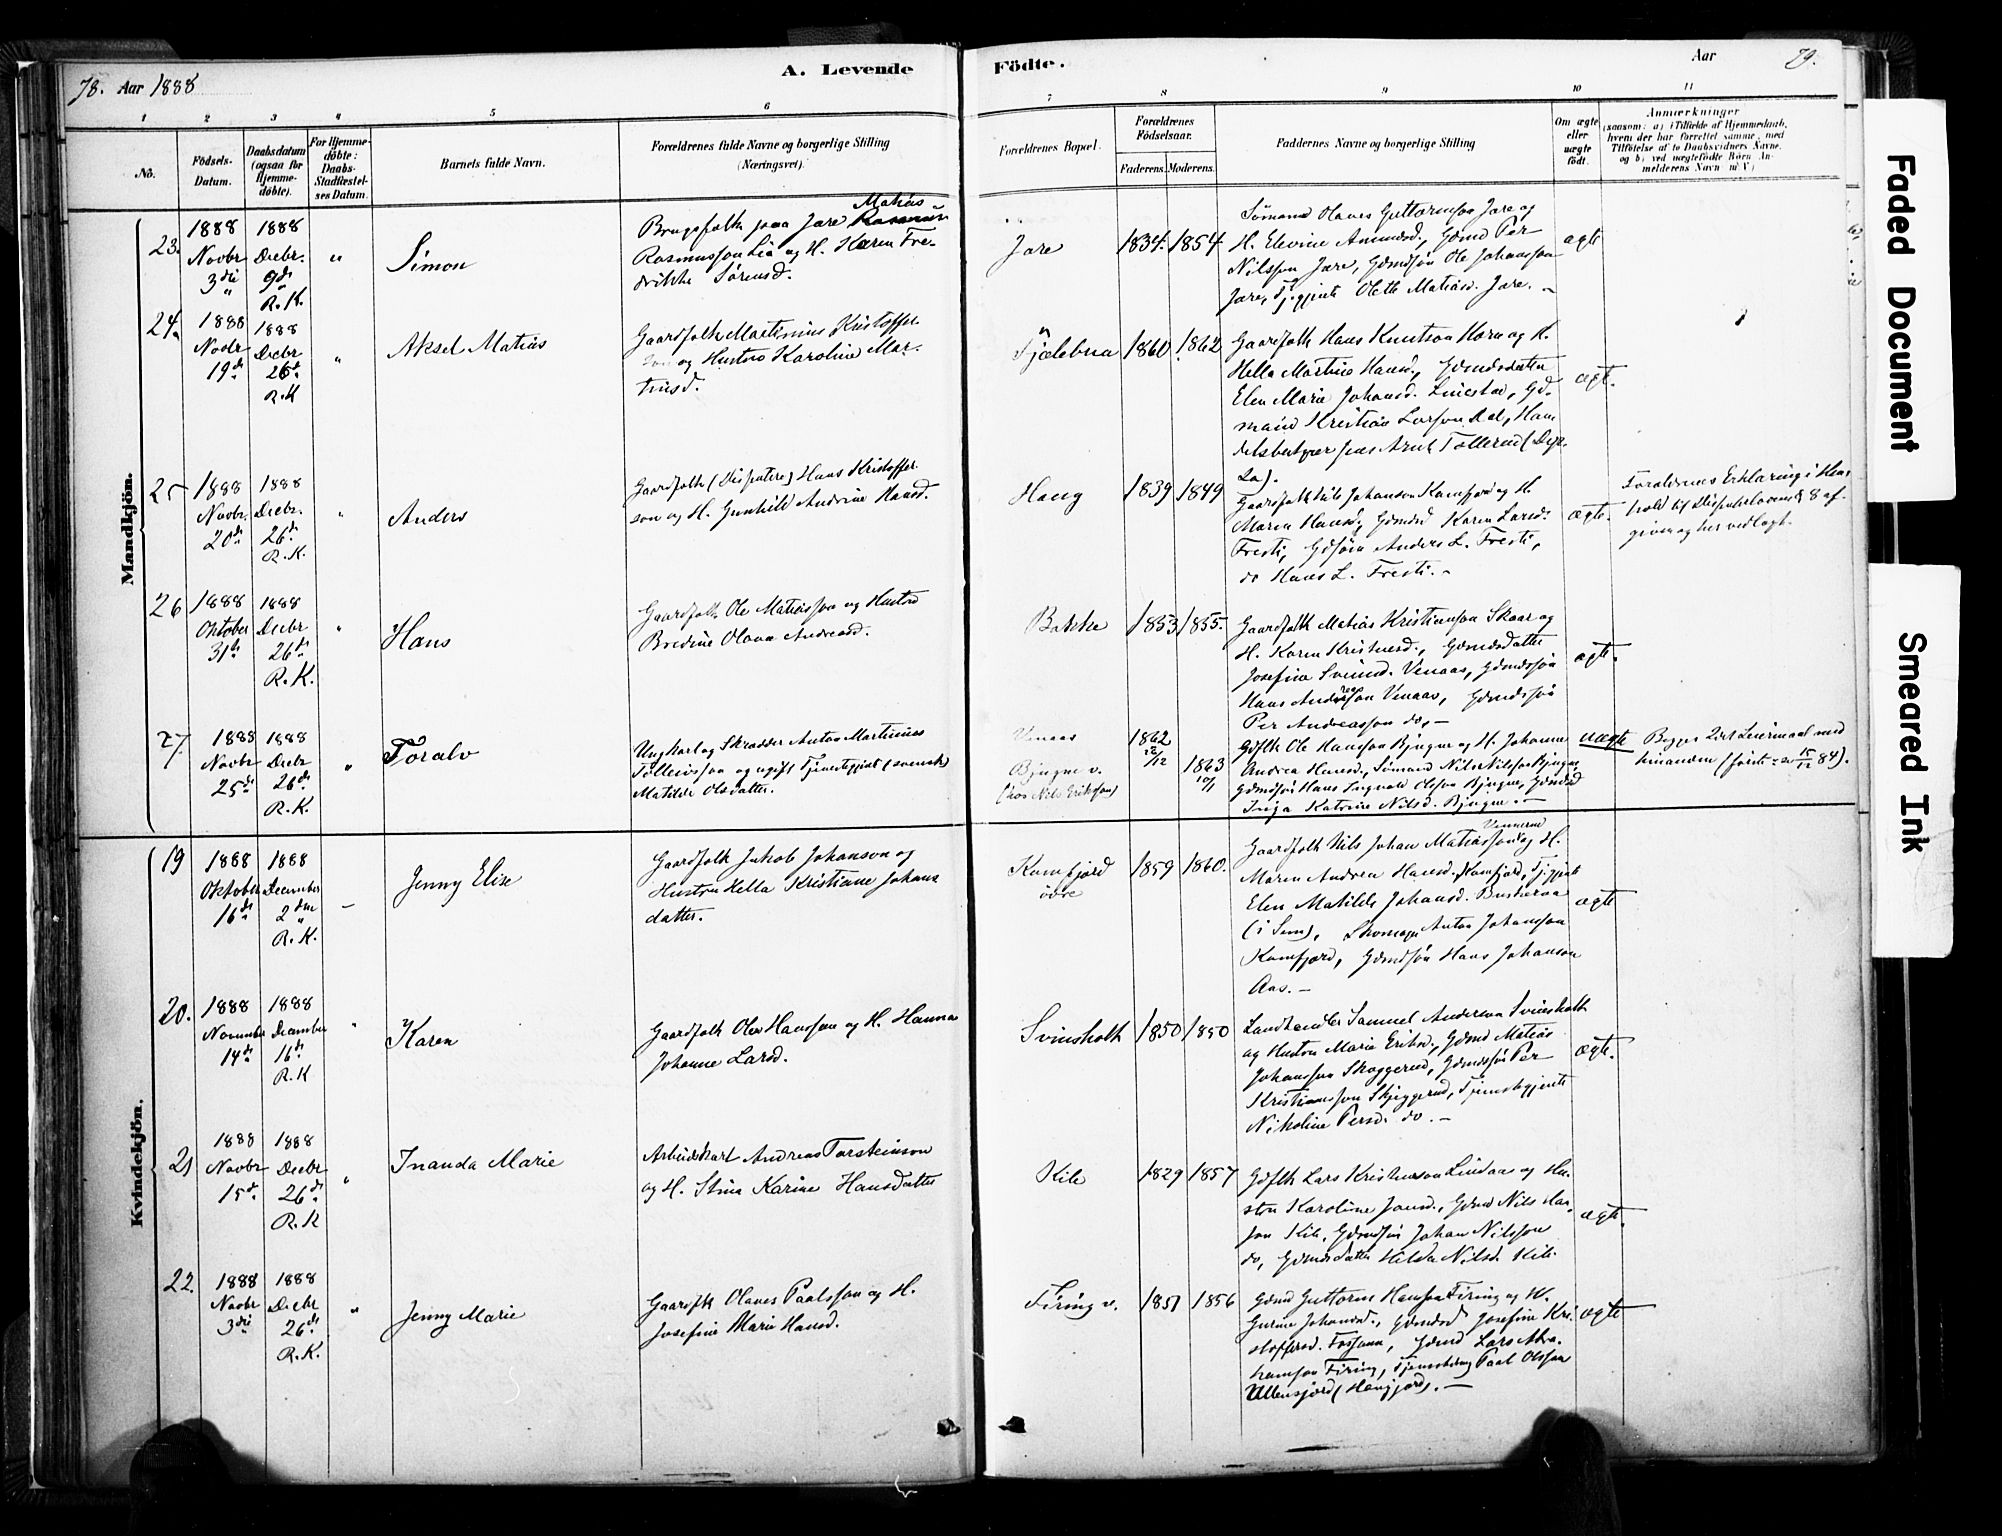 78. Aar 1888
A. Levende
Födte.
Aar
79.
1
2
3
4
5
6
7
8
9
10
11
No.
Födsels-
Datum.
Daabsdatum
(ogsaa for
Hjemme-
döbte).
For Hjemme-
döbte:
Daabs-
Stadfæstel-
ses Datum.
Barnets fulde Navn.
Forældrenes fulde Navne og borgerlige Stilling
(Næringsvei).
Forældrenes Bopæl.
Forældrenes
Födselsaar.
Faderens.
Moderens.
Faddernes Navne og borgerlige Stilling
Om ægte
eller
uægte
født.
Anmærkninger
(saasom: a) i Tilfælde af Hjemmedaab,
hvem der har forrettet samme, med
Tilföielse af to Daabsvidners Navne,
og b) ved uægtefödte Börn An-
melderens Navn m. V.)
Mandkjön.
23.
1888
Novbr
3die
1888
Decbr.
9de
R. K.
"
Simon
Brugsfolk paa Jare Matias
Rasmussøn Lia og H. Karen Fre-
drikke Sørensd.
Jare
1834.
1854.
Sömand Olaves Guttormsøn Jare og
H. Elevine Amundsd., Gdmd Per
Nilssøn Jare, Gdmdsøn Ole Johanssøn
Jare, Tj.gjente Olette Matiasd. Jare. -
ægte
24.
1888
Novbr
19de
1888
Decbr
26de
R. K
"
Aksel Matias
Gaardfolk Martinius Kristoffer-
søn og Hustru Karoline Mar-
tinsd.
Fjælebua
1860
1862
Gaardfolk Hans Knutsøn Horn og H.
Hella Martine Hansd., Gdmdsdatter
Elen Marie Johansd. Linestad, Gd-
mand Kristian Larssøn Aal, Han
delsbestyrer
ægt.
25
1888
Novbr.
20de
1888
Decbr.
26de
R. K.
"
Anders
Gaardfolk (Dissentere) Hans Kristoffer-
søn og H. Gunhild Andrine Hansd.
Haug
1839
1849
Gaardfolk Nils Johansøn Kamfjord og H.
Maren Hansd., Gdmdsd Karen Larsd.
Fresti, Gdsøn Anders L. Fresti,
do Hans L. Fresti. -
ægte.
Forældrenes Erklæring i Hen-
hold til Dissenterlovens § 8 af-
given og her vedlagt.
26
1888
Oktober
31te
1888
Decbr
26de
R. K.
"
Hans
Gaardfolk Ole Matiassøn og Hustru
Bredine Olava Andreasd.
Bakke
1853
1855.
Gaardfolk Matias Kristiansøn Skaar og
H. Karen Kristensd., Gdmdsdatter
Josefine Svend. Venaas, Gdmdssøn
Hans Andreassøn Venaas, Gdmdssøn
Per Andreassøn do, -
ægte.
27.
1888
Novbr
25de
1888
Decbr
26de
R. K.
"
Toralv
Ungkarl og Skrædder Anton Martinius
Tollefssøn og ugift Tjenestegjente (svensk)
Matilde Olsdatter.
Venaas
Bjugne v.
(hos Nils Erikssøn)
1862
22/12
1863
10/1
Gdflk Ole Hanssøn Bjugne og H. Johanne
Andrea Hansd., Sömand Nils Nilssøn Bjugne,
Gdmdsøn Hans Ingvald Olssøn Bjugne, Gdmdsd
Inga Katrine Nilsd. Bjugne. -
uægte
Begges 2det Leiermaal med
hinanden (første - 15/12 84).
Kvindekjön.
19
1888
Oktober
16de
1888
December
2den
R. K.
-
Jenny Elise
Gaardfolk Jakob Johansøn og
Hustru Hella Kristiane Johans
datter.
Kamfjord
övre
1859
1860.
Gaardfolk Nils Johan Matiassøn og H.
Maren Andrea Hansd. Kamfjord, Tj.gjente
Elen Matilde Johansd. Buskerua
(i Sem), Skomager Anton Johanssøn
Kamfjord, Gdmdsøn Hans Johanssøn
Aas. -
ægte
20.
1888
November
14de
1888
December
16de
R. K
"
Karen
Gaardfolk Olav Hanssøn og H. Hanna
Johanne Larsd.
Svinsholt
1850
1850
Landhandler Samuel Andersøn Svinsholt
og Hustru Marie Eriksd., Gdmd Matias
Johanssøn Skaggerud, Gdmdssøn Per
Kristianssøn Skjeggerud, Tjenestegjente
Nikoline Persd. do. -
ægte.
21
1888
Novbr
15de
1888
Decbr
26de
R. K
"
Inanda Marie
Arbeidskarl Andreas Torsteinsøn
og H. Stina Karine Hansdatter
Kile
1829
1857
Gdflk Lars Kristensøn Lindaas og Hu-
stru Karoline Jansd., Gdmd Nils Han-
søn Kile, Gdmdsøn Johan Nilssøn
do, Gdmdsdatter Hilda Nilsd. Kile
ægte.
22.
1888
Novbr
3die
1888
Decbr
26de
R. K.
"
Jenny Marie
Gaardflk Olaves Paalssøn og H.
Josefine Marie Hansd.
Firing v.
1851
1856
Gdmd Guttorm Hanssøn Firing og H.
Gurine Johansd., Gdmdsd Josefine Kri-
stoffersd. Fossann, Gdmd Lars Abra-
hamsøn Firing, Tjenestedreng Paal Olssøn
Ullensfjord (Haugfjord). -
ægte
Faded Document
Smeared Ink